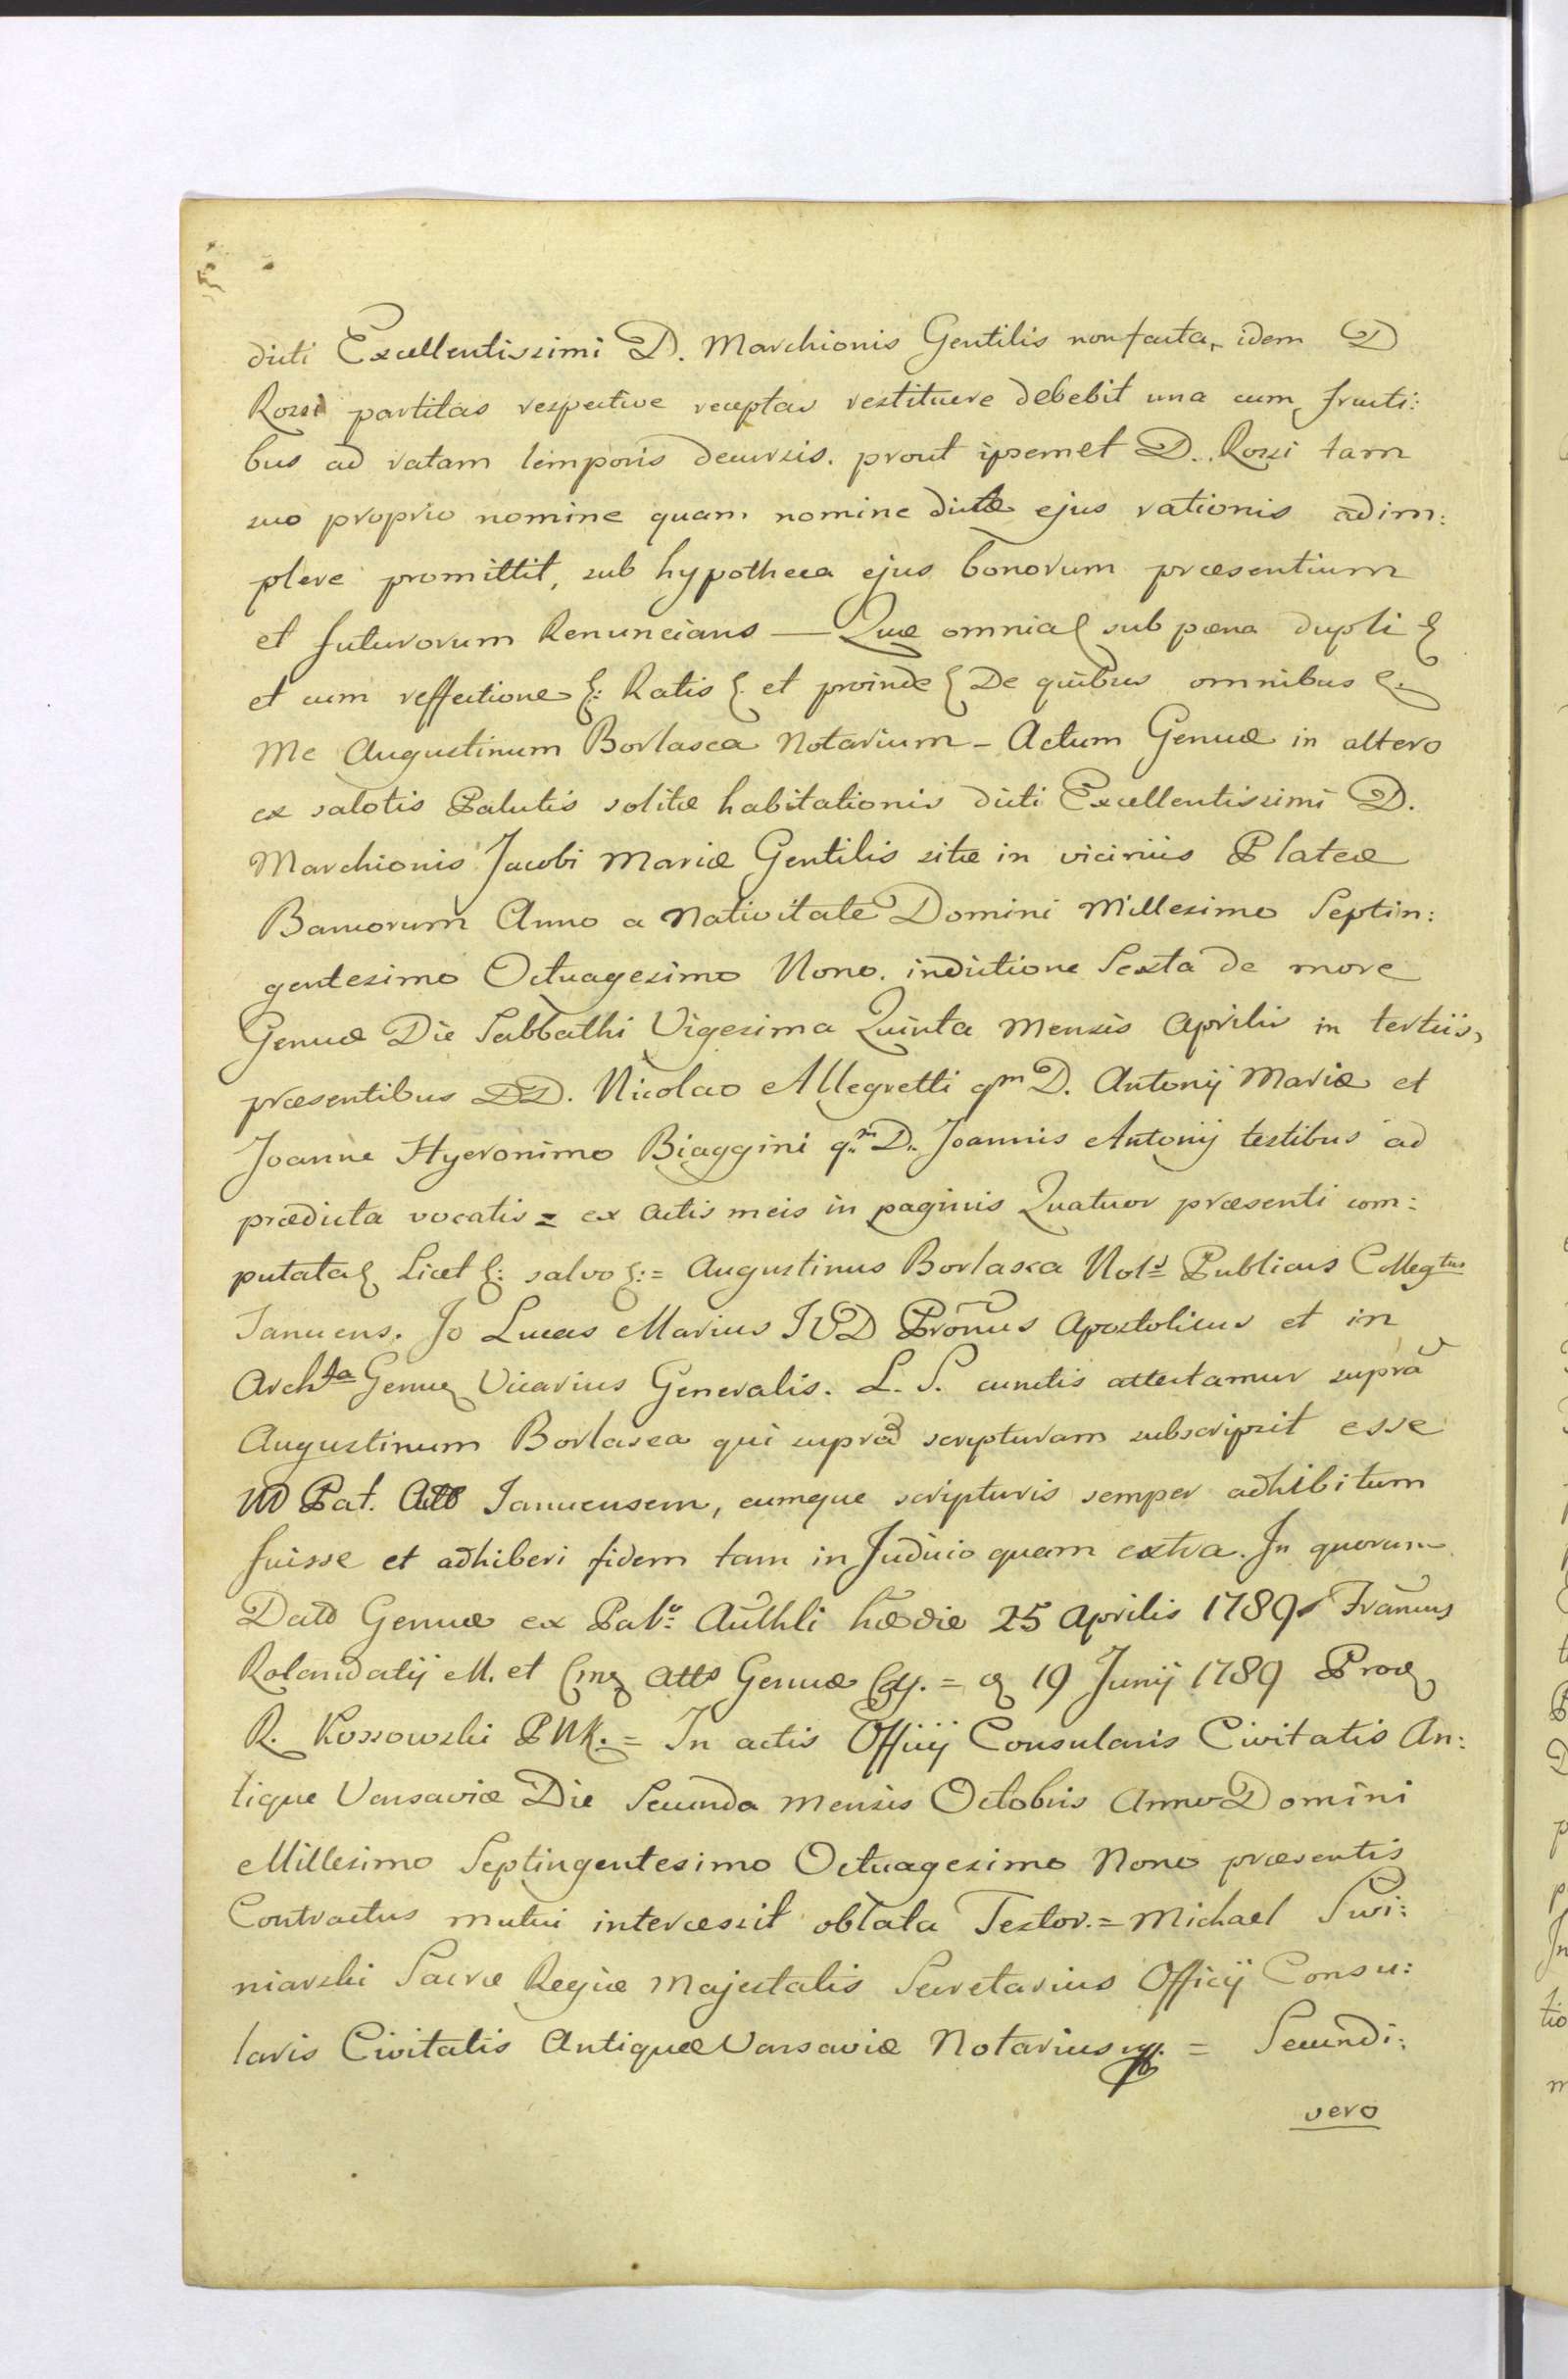 dicti Excellentissimi D. Marchionis Gentilis non facta, idem D
Rossi partitas respective receptas restituere debebit una cum fructi:
bus ad ratam temporis decursis. prout ipsemet D. Rossi tam
suo proprio nomine quam nomine dictæ ejus rationis adim:
plere promittit, sub hypotheca ejus bonorum præsentium
et futurorum Renuncians — Quæ omnia sub pœna dupli
et cum reffectione Ratis et proinde De quibus omnibus
Me Augustinum Borlasca Notarium - Actum Genuæ in altero
ex salotis Palatis solitæ habitationis dicti Excellentissimi D.
Marchionis Jacobi Mariæ Gentilis sitæ in viciniis Plateæ
Bancorum Anno a Nativitate Domini Millesimo Septin:
gentesimo Octuagesimo Nono. indictione Sexta de more
Genuæ Die Sabbathi Vigesima Quinta Mensis Aprilis in tertiis,
præsentibus DD. Nicolao Allegretti qm D. Antonij Mariæ et
Joanne Hyeronimo Biaggini qm D. Joannis Antonij testibus ad
prædicta vocatis = ex actis meis in paginis Quatuor præsenti com:
putata Licet salvo = Augustinus Borlasca Nots Publicus Collegtus
Januens. Jo Lucas Marius IVD Pronus Apostolicus et in
Archta Genuæ Vicarius Generalis. L. S. cunctis attestamur supra
Augustinum Borlasca qui supra scripturam subscripsit esse
Pat. Januensem, eumque scripturis semper adhibitum
fuisse et adhiberi fidem tam in Judicio quam extra. In quorum
Dat Genuæ ex Pal. Authli hæ die 25 Aprilis 1789 Francus
Rolandatij M. et Atts Genuæ = 19 Junij 1789
R. Kossowski = In actis Officij Consularis Civitatis An:
tique Varsaviæ Die Secunda Mensis Octobris Anno Domini
Millesimo Septingentesimo Octuagesimo Nono præsentis
Contractus mutui intercessit oblata Testor. = Michael Swi:
niarski Sacræ Regiæ Majestatis Secretarius Officij Consu:
laris Civitatis Antiquæ Varsaviæ Notarius = Secundi:
vero